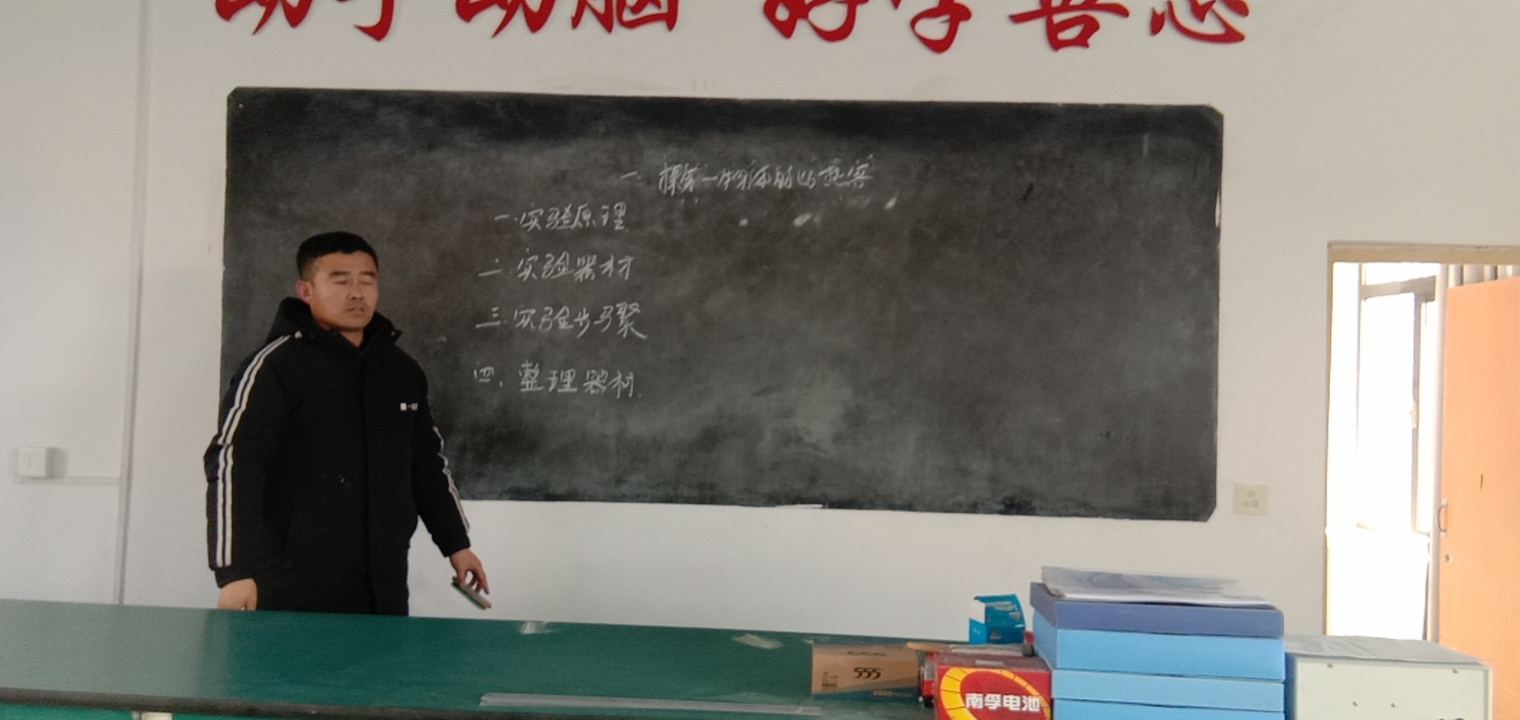 动手动脑 好学善思
一. 探究一物体的
一.实验原理
二.实验器材
三.实验步骤
四、整理器材.
555
南孚电池